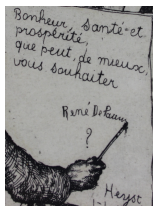 Bonheur, santé et
prospérité,
que peut, de mieux,
vous souhaiter
René De Pauw
?
Heyst